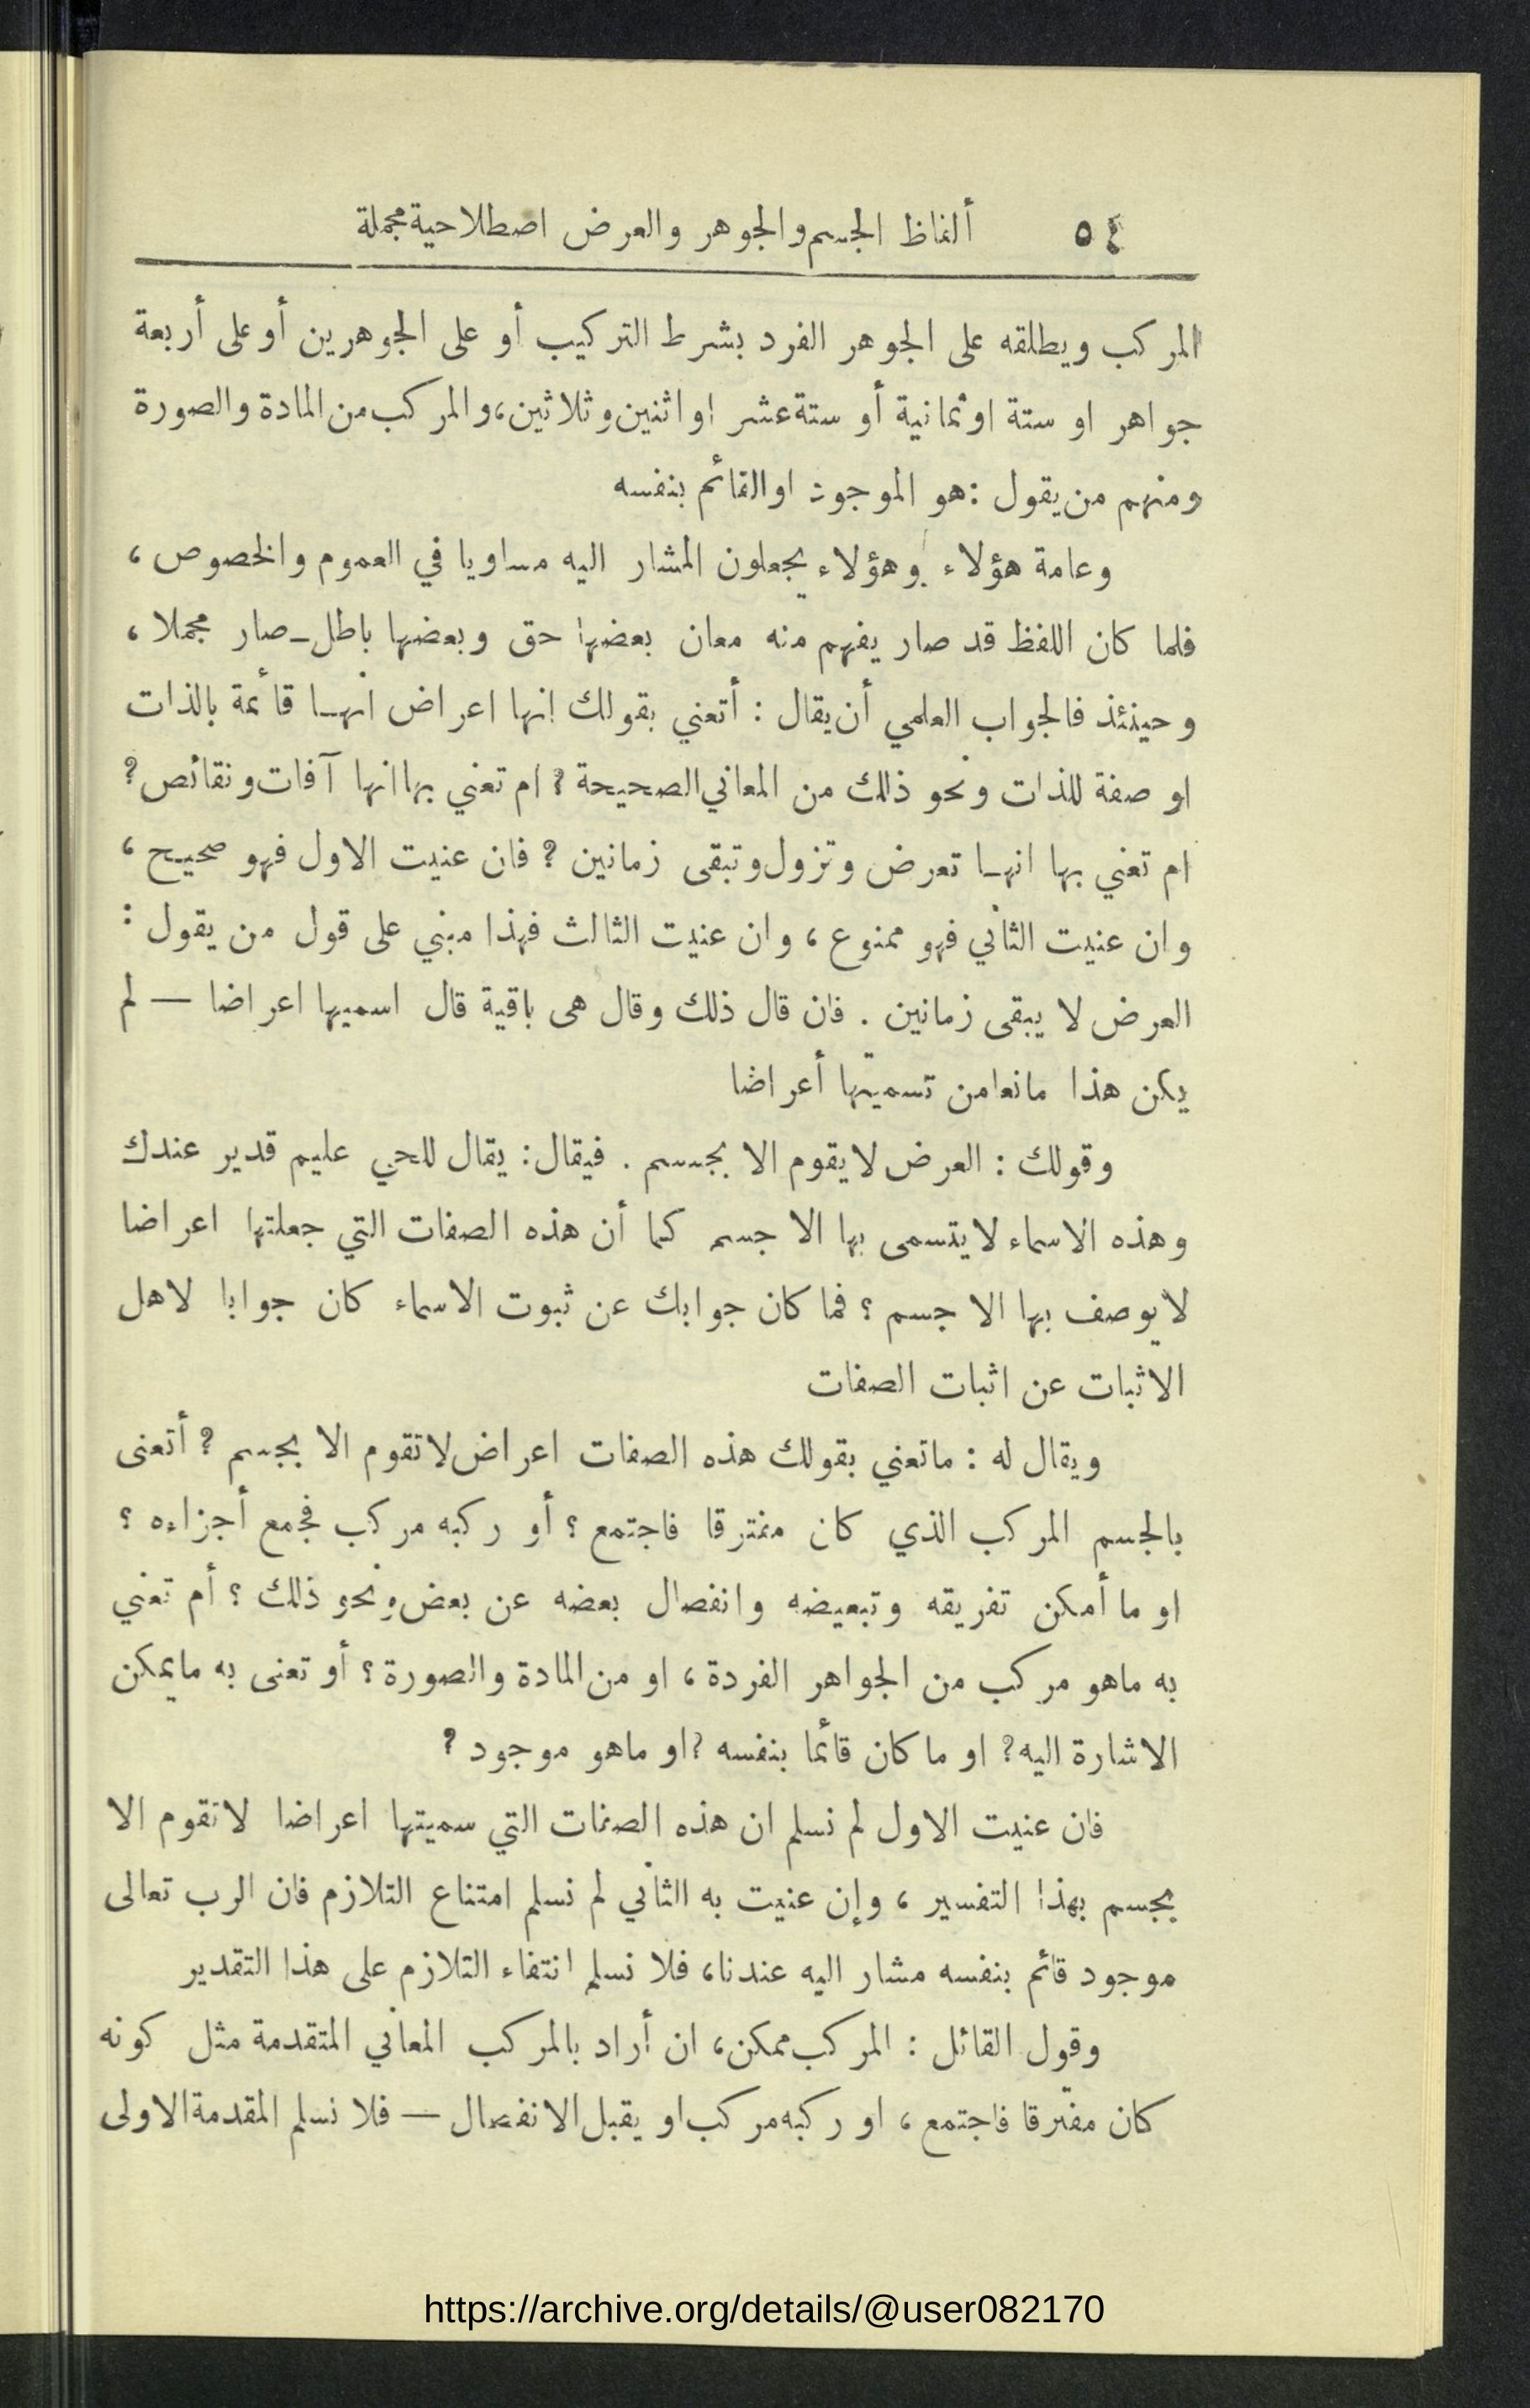 ٥٤ ألفاظ الجسم والجوهر والعرض اصطلاحية مجملة
المركب ويطلقه على الجوهر الفرد بشرط التركيب أو على الجوهرين أو على أربعة
جواهر او ستة او ثمانية أو ستة عشر او اثنين وثلاثين، والمركب من المادة والصورة
ومنهم من يقول : هو الموجود او القائم بنفسه
وعامة هؤلاء وهؤلاء يجعلون المشار اليه مساويا في العموم والخصوص ،
فلما كان اللفظ قد صار يفهم منه معان بعضها حق وبعضها باطل ــ صار مجملا ،
وحينئذ فالجواب العلمي أن يقال : أتعني بقولك انها اعراض انهـا قائمة بالذات
او صفة للذات ونحو ذلك من المعاني الصحيحة ؟ ام تعني بها انها آفات ونقائص ؟
ام تعني بها انهـا تعرض وتزول وتبقى زمانين ؟ فان عنيت الاول فهو صحيح ،
وان عنيت الثاني فهو ممنوع ، وان عنيت الثالث فهذا مبني على قول من يقول :
العرض لا يبقى زمانين . فان قال ذلك وقال هى باقية قال اسميها اعراضا — لم
يكن هذا مانعا من تسميتها أعراضا
وقولك : العرض لا يقوم الا بجسم . فيقال : يقال للحي عليم قدير عندك
وهذه الاسماء لا يتسمى بها الا جسم كما أن هذه الصفات التي جعلتها اعراضا
لا يوصف بها الا جسم ؟ فما كان جوابك عن ثبوت الاسماء كان جوابا لاهل
الاثبات عن اثبات الصفات
ويقال له : ما تعني بقولك هذه الصفات اعراض لا تقوم الا بجسم ؟ أتعنى
بالجسم المركب الذي كان مفترقا فاجتمع ؟ أو ركبه مركب فجمع أجزاءه ؟
او ما أمكن تفريقه وتبعيضه وانفصال بعضه عن بعض ونحو ذلك ؟ أم تعني
به ماهو مركب من الجواهر الفردة ، او من المادة والصورة ؟ أو تعنى به مايمكن
الاشارة اليه ؟ او ما كان قائما بنفسه ؟ او ماهو موجود ؟
فان عنيت الاول لم نسلم ان هذه الصفات التي سميتها اعراضا لا تقوم الا
بجسم بهذا التفسير ، وإن عنيت به الثاني لم نسلم امتناع التلازم فان الرب تعالى
موجود قائم بنفسه مشار اليه عندنا، فلا نسلم انتفاء التلازم على هذا التقدير
وقول القائل : المركب ممكن، ان أراد بالمركب المعاني المتقدمة مثل كونه
كان مفترقا فاجتمع ، او ركبه مركب او يقبل الانفصال — فلا نسلم المقدمة الاولى
https://archive.org/details/@user082170